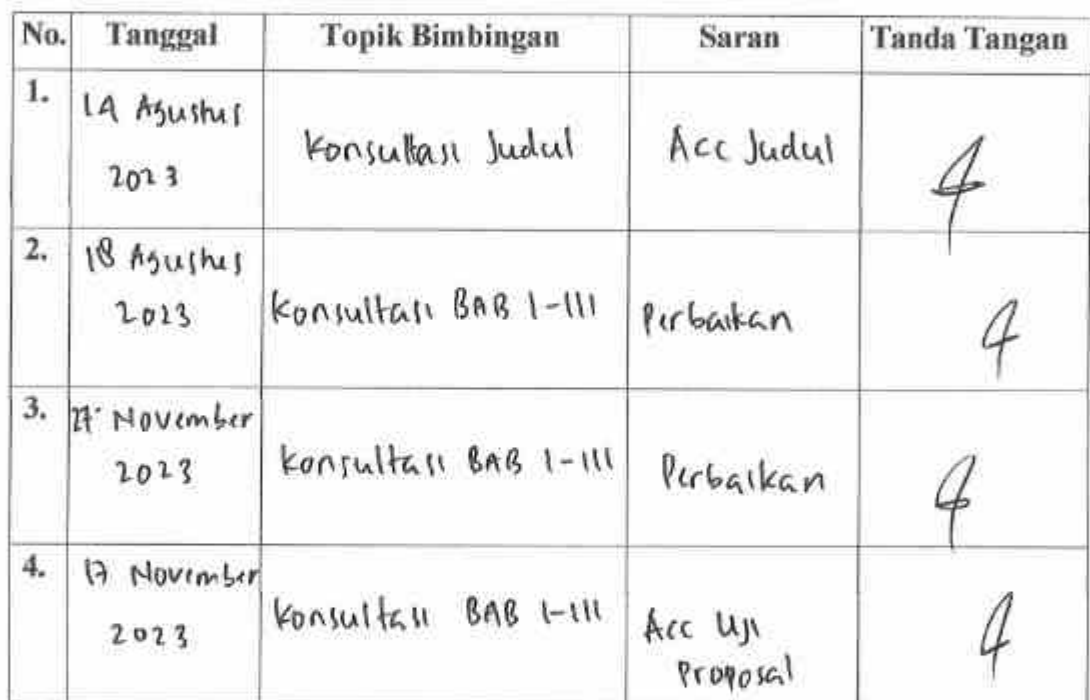 No. Tanggal Topik Bimbingan Saran Tanda Tangan
1. 14 Agustus
2023
Konsultasi Judul Acc Judul
2. 18 Agustus
2023 Konsultasi BAB I-III Perbaikan
3. November
2023 Konsultasi BAB I-III Perbaikan
4. 17 November
2023 Konsultasi BAB I-III Acc Uji
Proposal